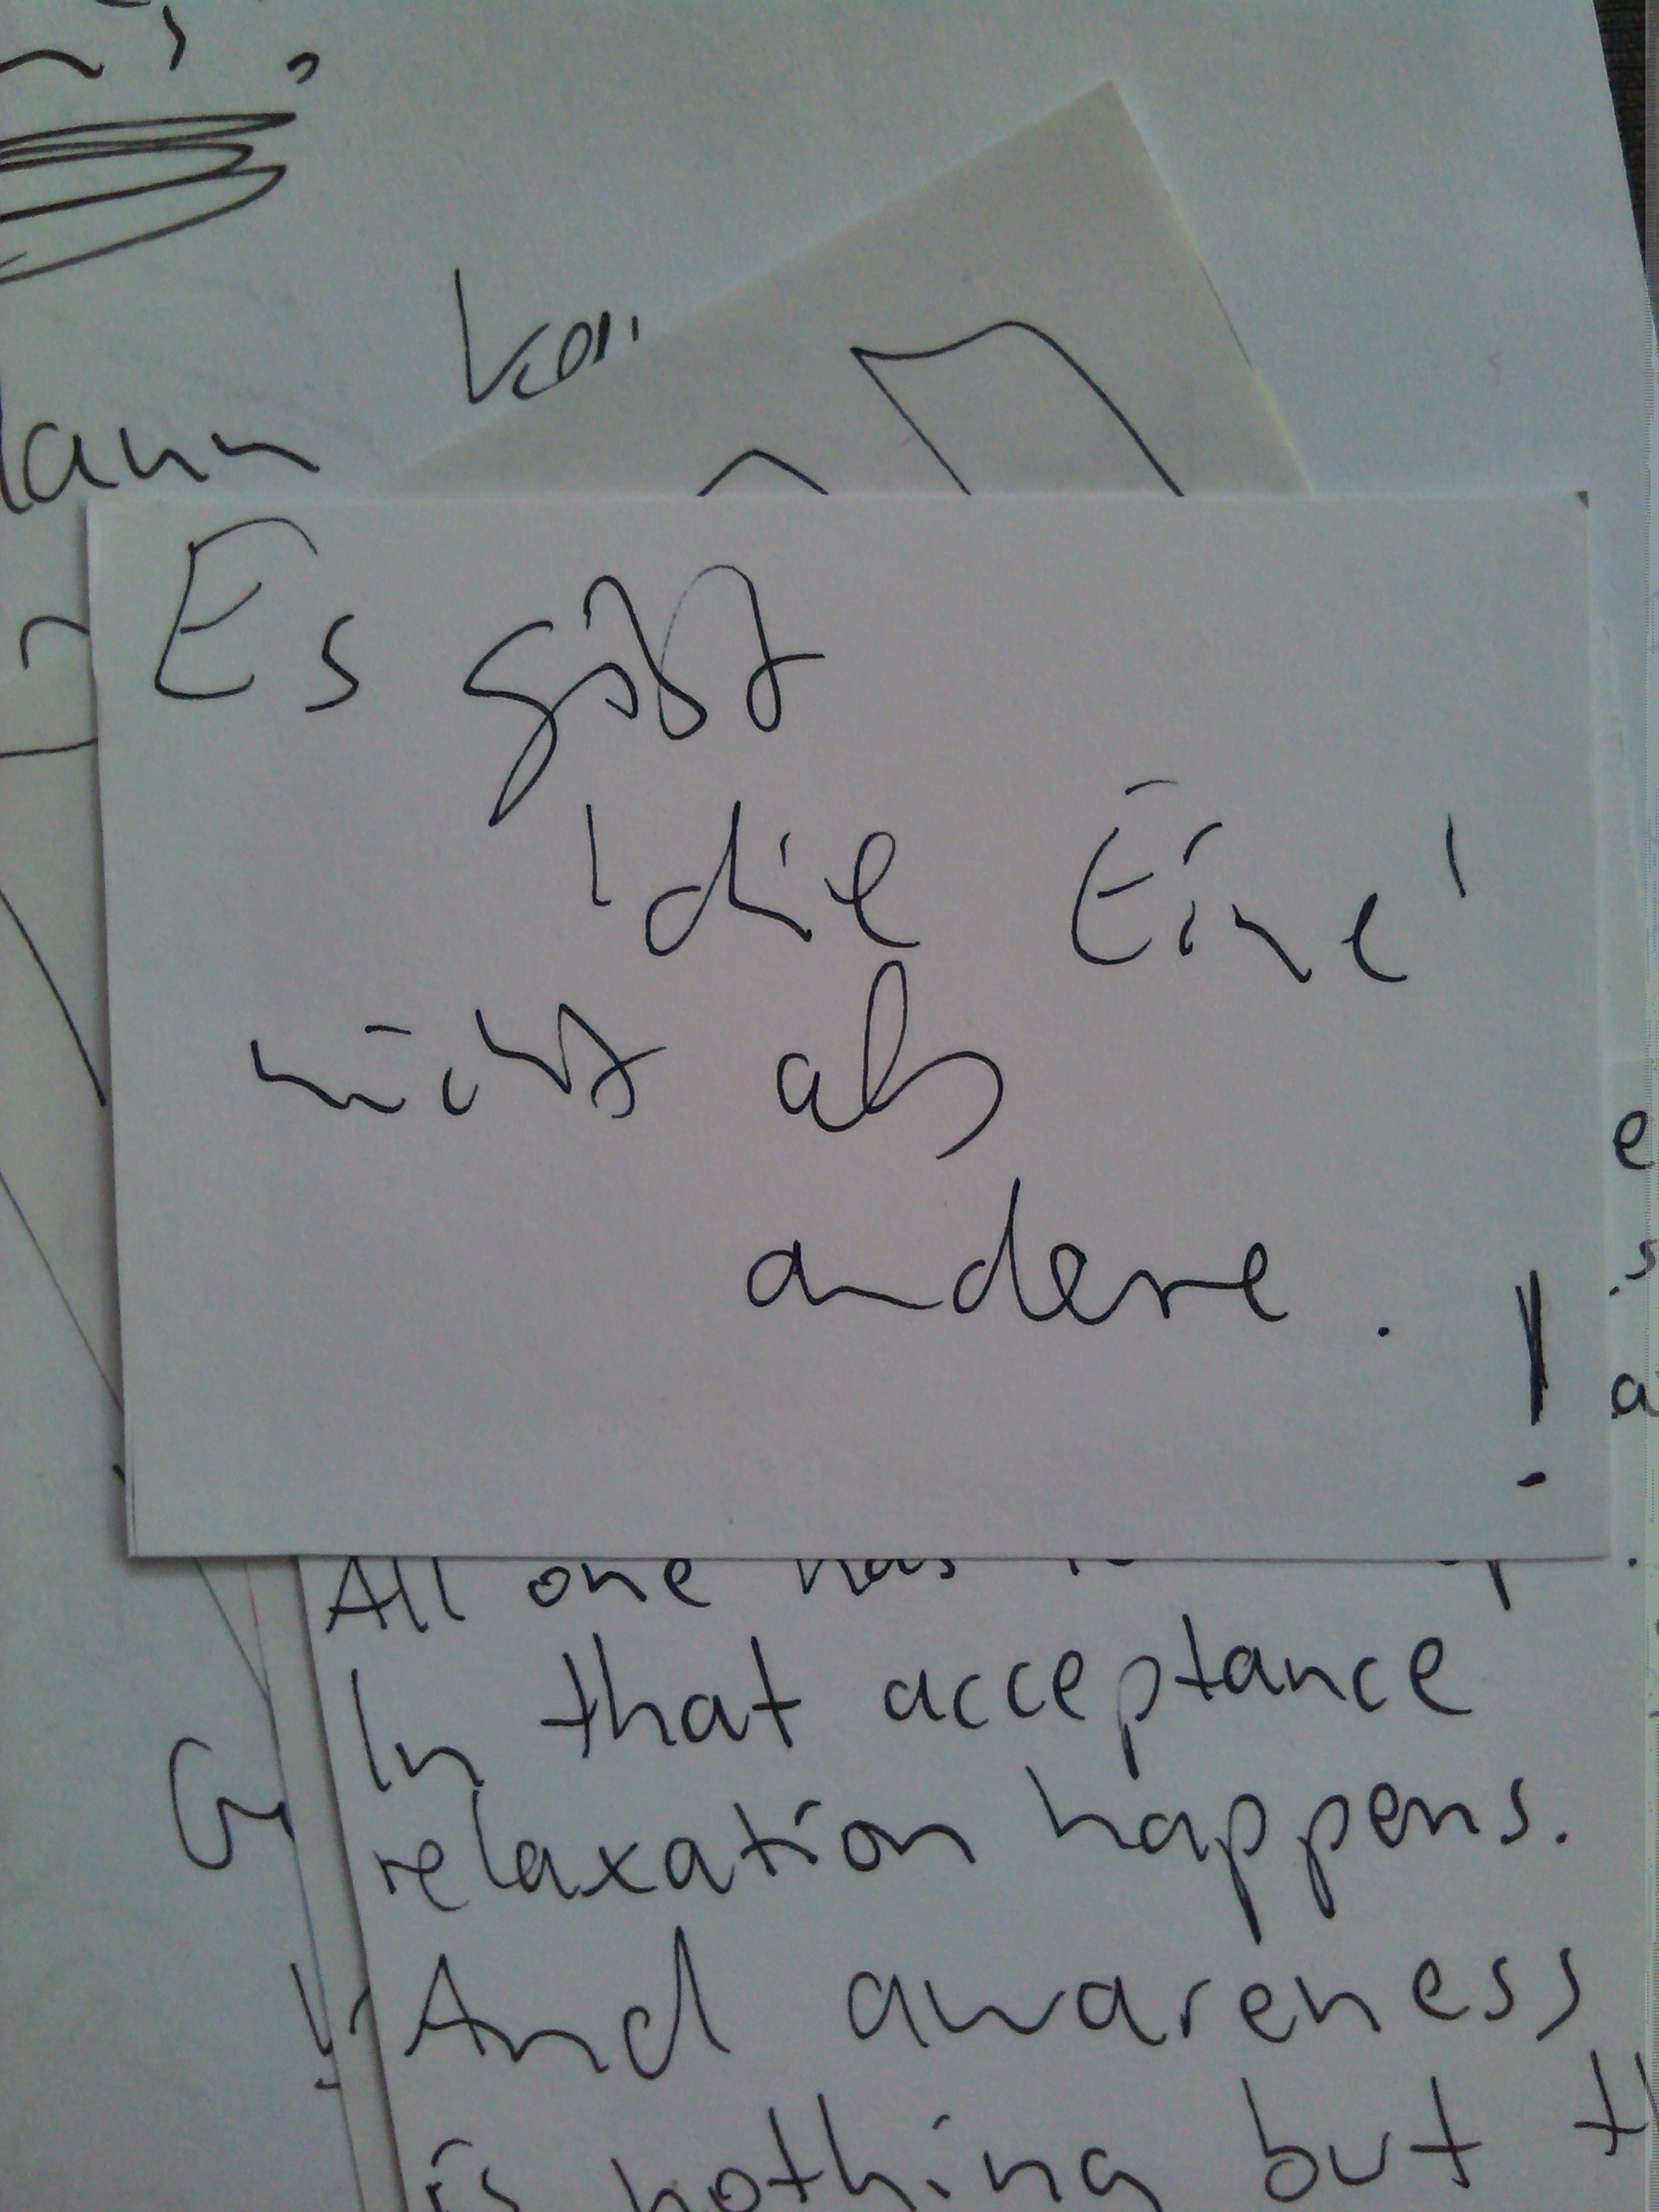 dann
Es gibt
'die Eine'
nicht als
andere.
!
All one has
In that acceptance
relaxation happens.
And awareness
is nothing but